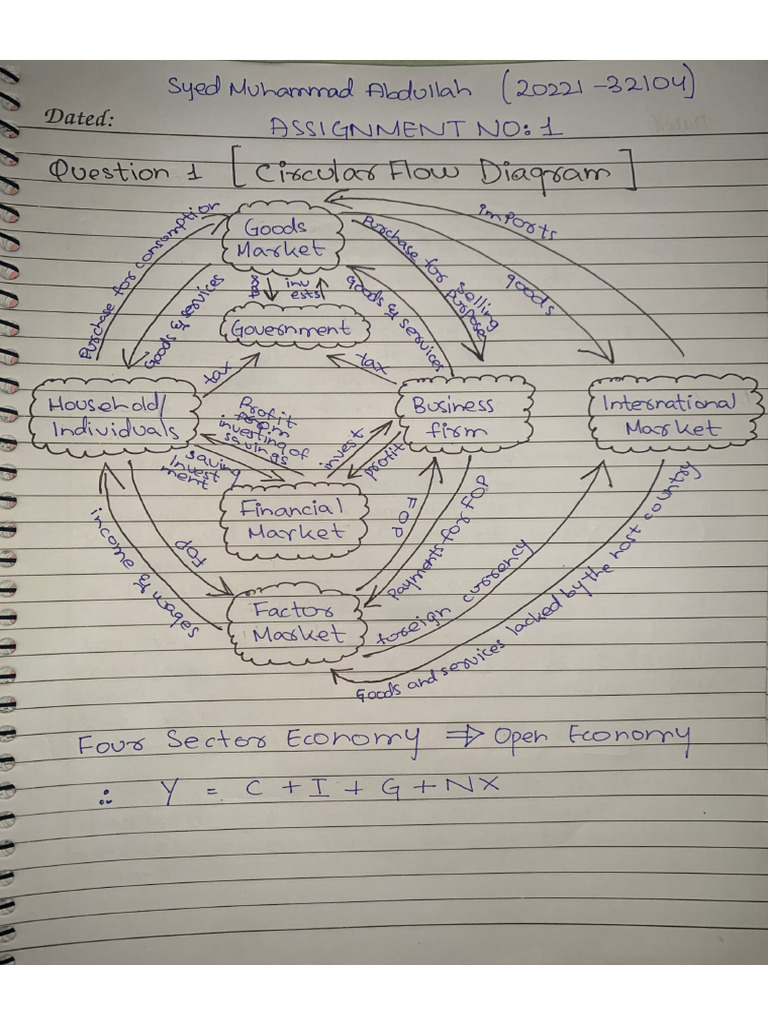 Syed Muhammad Abdullah (20221-32104)
Dated:
ASSIGNMENT NO: 1
Question 1 [Circular Flow Diagram]
Goods
Market
imports
Purchase for consumption
Goods & services
inv
ests
Goods & services
Purchase for selling
purpose
goods
Government
tax
tax
Household/
Individuals
Business
firm
International
Market
Profit
from
investing of
savings
saving
invest
ment
invest
profit
Financial
Market
FOP
FOP
Payments for FOP
income & wages
Factor
Market
foreign currency
Goods and services lacked by the host country
Four Sector Economy ⇒ Open Economy
∴ Y = C + I + G + NX